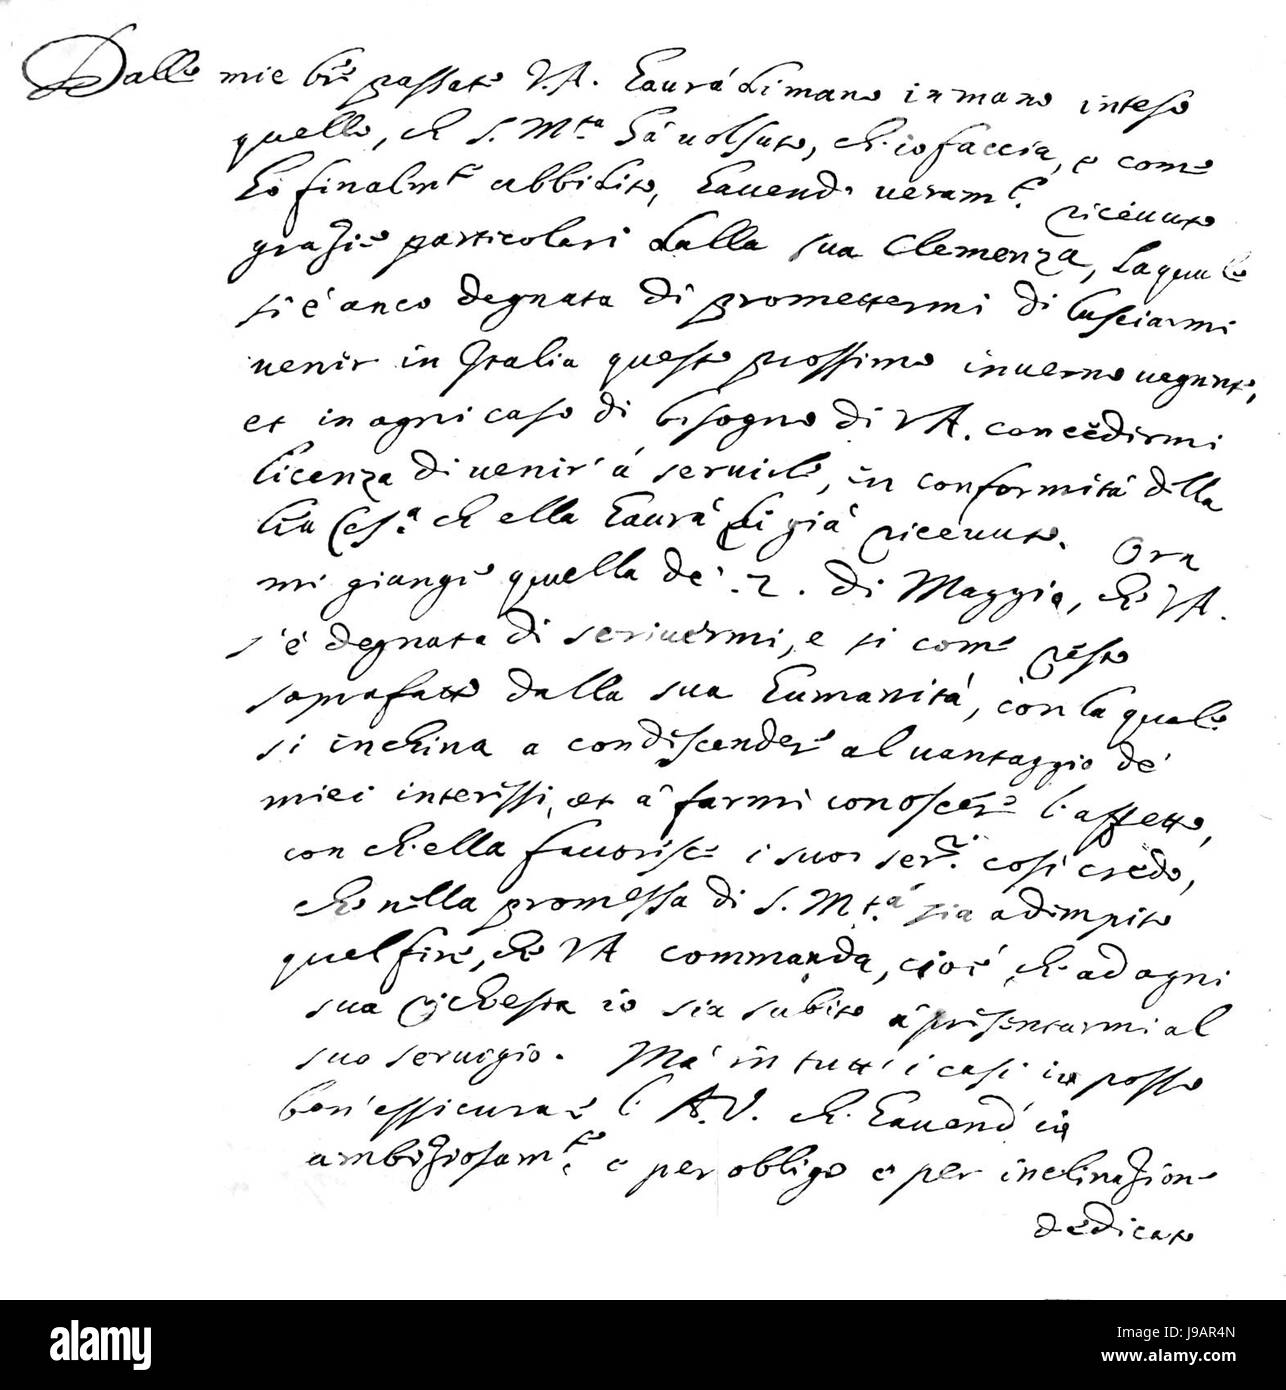 Dalle mie l.re passate V.A. haurà di mano in mano inteso
quello, ch S. M.ta hà uolsuto, ch'io faccia, e come
hò finalm.te ubbidito, hauend. ueram.te riceuute
grazie particolari dalla sua Clemenza, laquale
si è anco degnata di promettermi di lasciarmi
uenir in Italia questo prossimo inuerno uegnte,
et in ogni caso di bisogno di VA. concedirmi
licenza di uenir à seruirla, in conformità della
Ces.a ch ella haurà di già riceuuto. Ora
mi giunge quella de' .2. di Maggio, che VA.
s'è degnata di scriuermi, e si come resto
soprafatto dalla sua humanità, con la quale
si inchina a condiscendere al uantaggio de'
miei interessi, et à farmi conoscere l'affetto,
con ch'ella fauorisce i suoi ser.ri così credo,
che nella promessa di S. M.tà sia adimpito
quel fine, che VA commanda, cioè, ch'ad ogni
sua richiesta io sia subito à presentarmi al
suo seruigio. Mà in tutti i casi io posso
ben'assicurare l'A.V. ch. hauend' io
ambiziosam.te e per obligo e per inclinazione
dedicato
alamy
Image ID: J9AR4N
www.alamy.com